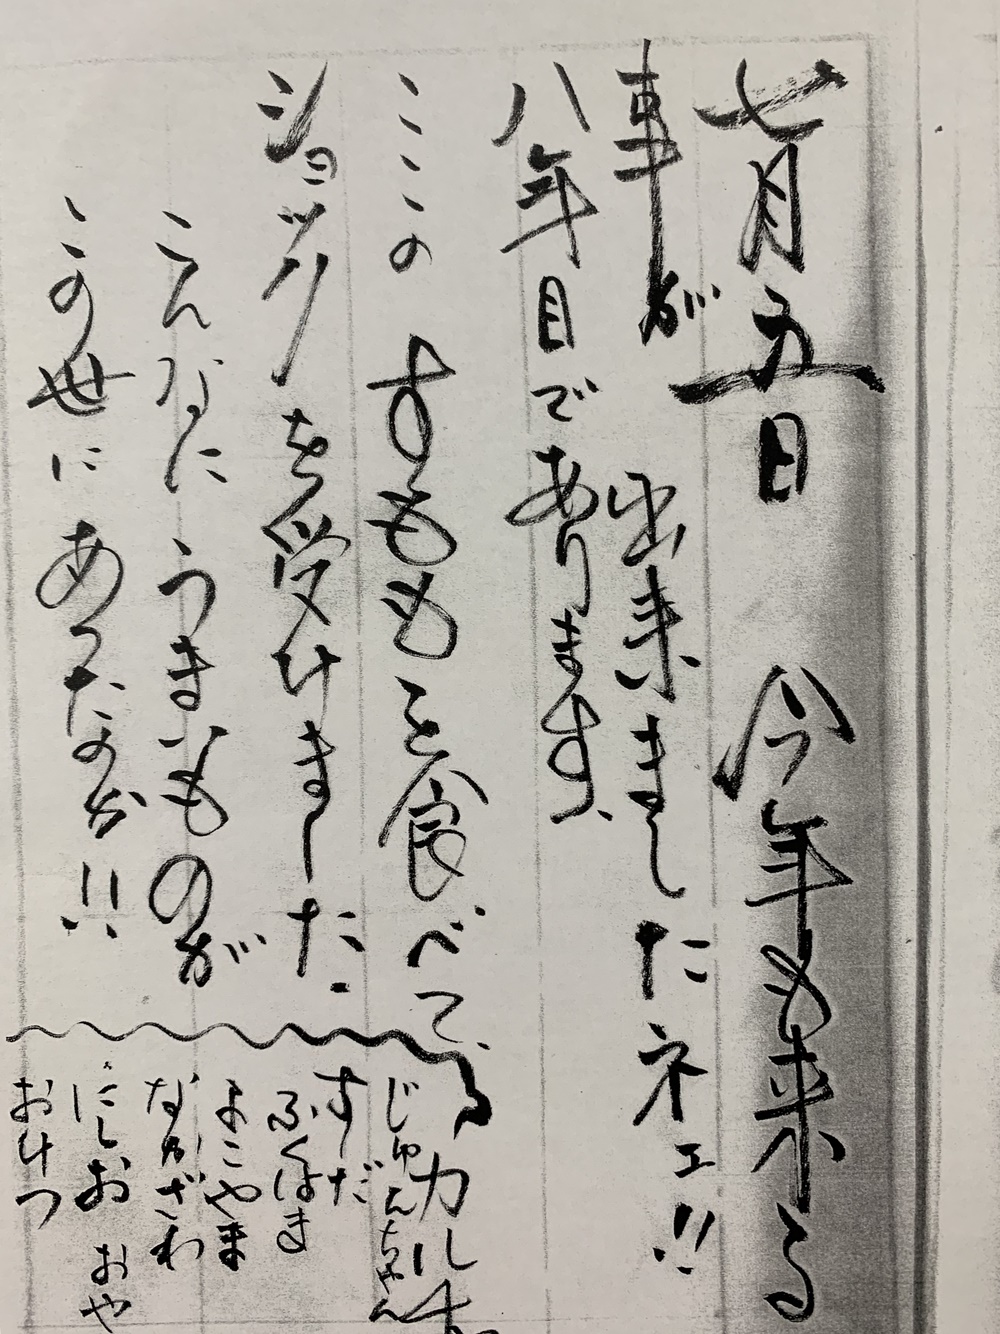 七月五日 今年も来る
事が 出来ましたネェ!!
八年目であります、
ここの すももを食べて、カルチ
ショックを受けました。
こんなに うまいものが
この世に あったのか!!
じゅんちゃん
すーだ
ふくはま
よこやま
ながざわ
にしお おや
おけつ